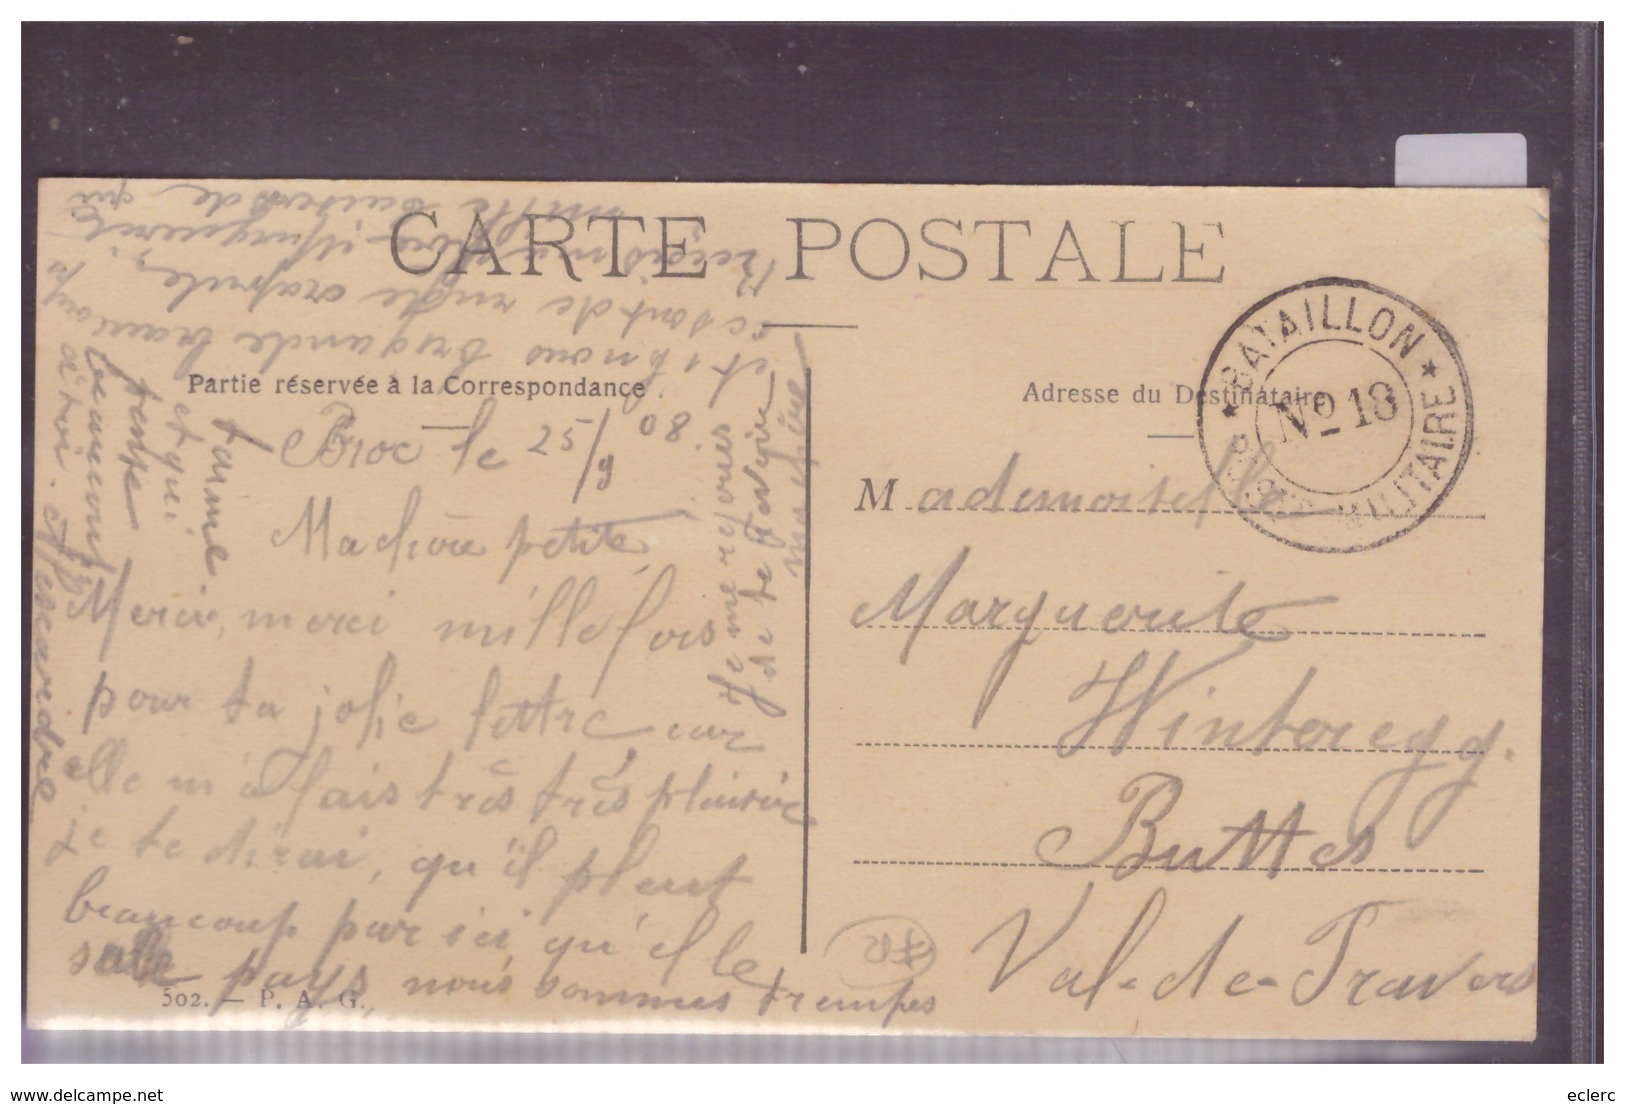 CARTE POSTALE
Partie réservée à la Correspondance
Adresse du Destinataire
★ BATAILLON ★
No 18
POSTE MILITAIRE
Broc le 25/9 08.
Ma chère petite,
Merci, merci mille fois
pour ta jolie lettre, car
elle m'a fais très très plaisir
je te dirai, qu'il pleut
beaucoup par ici, qu'el le
sale pays, nous sommes trempes
et nous
sont de
mille baisers de
qui
t'aime
et qui
pense
beaucoup
à toi.
Je me rejouis
Mademoiselle
Marguerite
Winteregg.
Buttes
Val-de-Travers
502. — P. A. G.
delcampe.net
eclerc